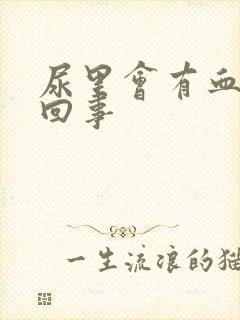 尿里會有血
回事
一生流浪的猫